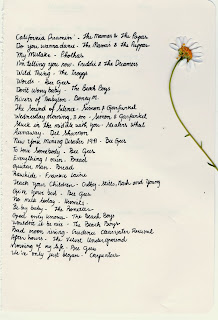 California Dreamin' - The Mamas & the Papas
Do you wanna dance - The Mamas & the Papas
My Mistake -
I'm telling you now - Freddie & The Dreamers
Wild Thing - The Troggs
Words - Bee Gees
Don't worry baby - The Beach Boys
Rivers of Babylon - Boney M.
The Sound of Silence - Simon & Garfunkel
Wednesday Morning, 3 am - Simon & Garfunkel
Stuck in the middle with you - Stealers Wheel
Runaway - Del Shannon
New York Mining Disaster 1941 - Bee Gees
To love Somebody - Bee Gees
Everything I own - Bread
Guitar Man - Bread
Rawhide - Frankie Laine
Teach your Children - Crosby, Stills, Nash and Young
Give your best - Bee Gees
No milk today - Hermits
Be my baby - The Ronettes
God only knows - The Beach Boys
Wouldn't it be nice - The Beach Boys
Bad moon rising - Creedence Clearwater Revival
After hours - The Velvet Underground
Morning of my life - Bee Gees
We've only just began - Carpenters